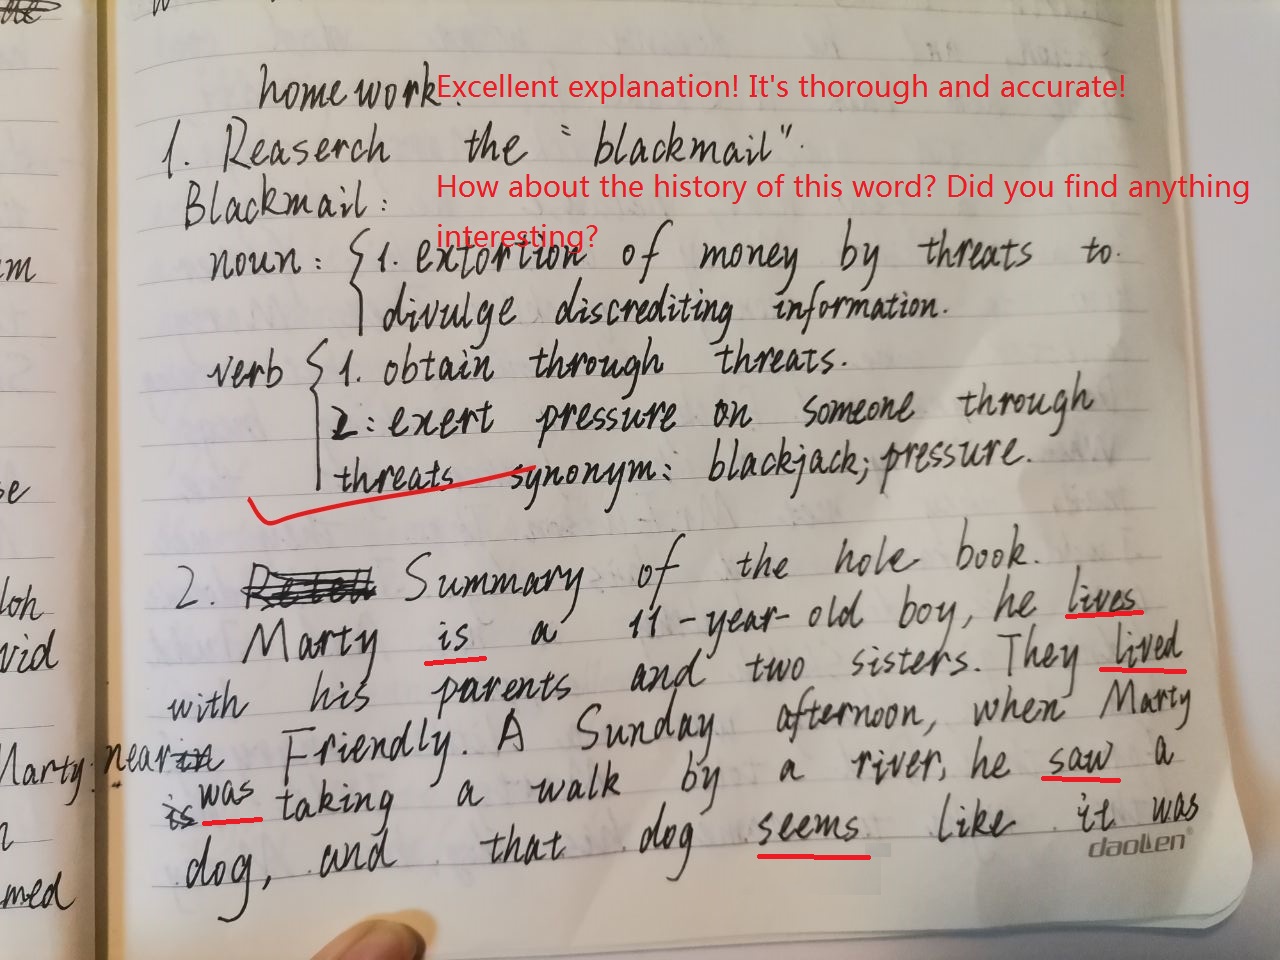 homework.
Excellent explanation! It's thorough and accurate!
1. Reaserch the "blackmail".
Blackmail:
How about the history of this word? Did you find anything
interesting?
noun: 1. extortion of money by threats to
divulge discrediting information.
verb 1. obtain through threats.
2: exert pressure on someone through
threats synonym: blackjack; pressure.
2. Summary of the hole book.
Marty is a 11-year-old boy, he lives
with his parents and two sisters. They lived
near in Friendly. A Sunday afternoon, when Marty
is was taking a walk by a river, he saw a
dog, and that dog seems like it was
daollen
Marty
med